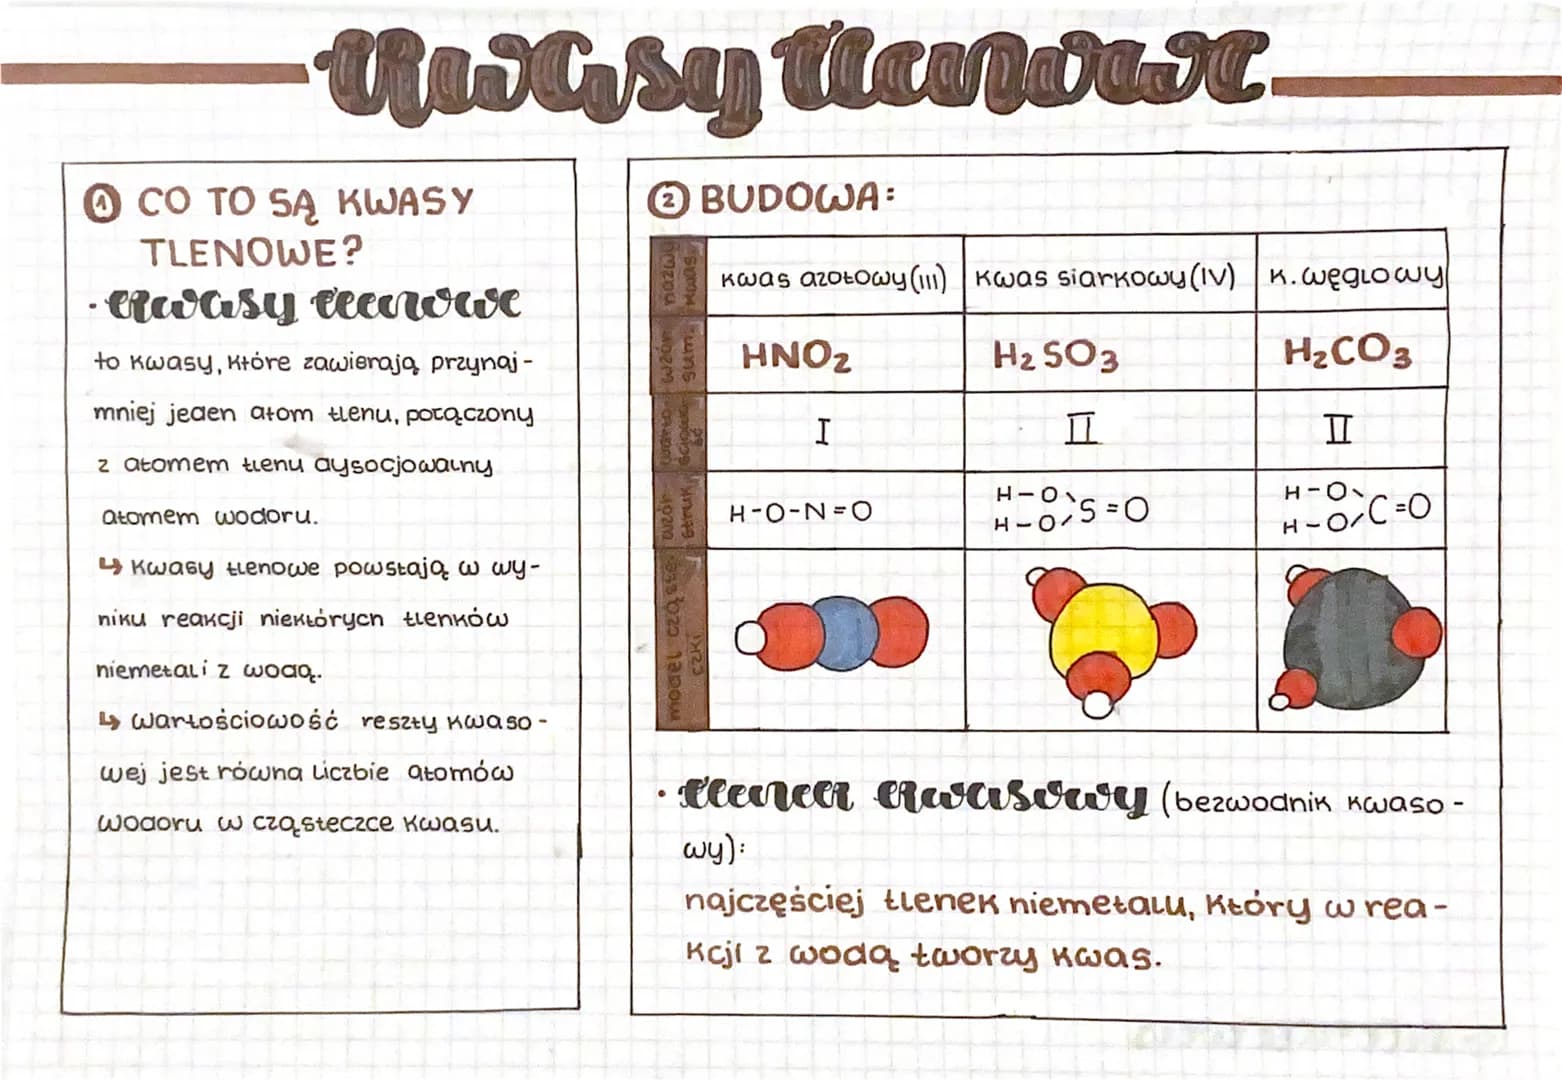 Kwasy tlenowe
① CO TO SĄ KWASY
TLENOWE?
· kwasy tlenowe
to kwasy, które zawierają przynaj-
mniej jeden atom tlenu, połączony
z atomem tlenu dysocjowalny
atomem wodoru.
↳ Kwasy tlenowe powstają w wy-
niku reakcji niektórych tlenków
niemetali z wodą.
↳ wartościowość reszty kwaso-
wej jest równa liczbie atomów
wodoru w cząsteczce kwasu.
② BUDOWA:
nazwy kwas.
kwas azotowy(III) kwas siarkowy(IV) k. węglowy
wzór sum.
HNO2 H2SO3 H2CO3
warto ściowo ść
I II II
wzór struk
H-O-N=O
H-O
H-O S=O
H-O
H-O C=O
model cząste czki
· tlenek kwasowy (bezwodnik kwaso-
wy):
najczęściej tlenek niemetalu, który w rea-
kcji z wodą tworzy kwas.